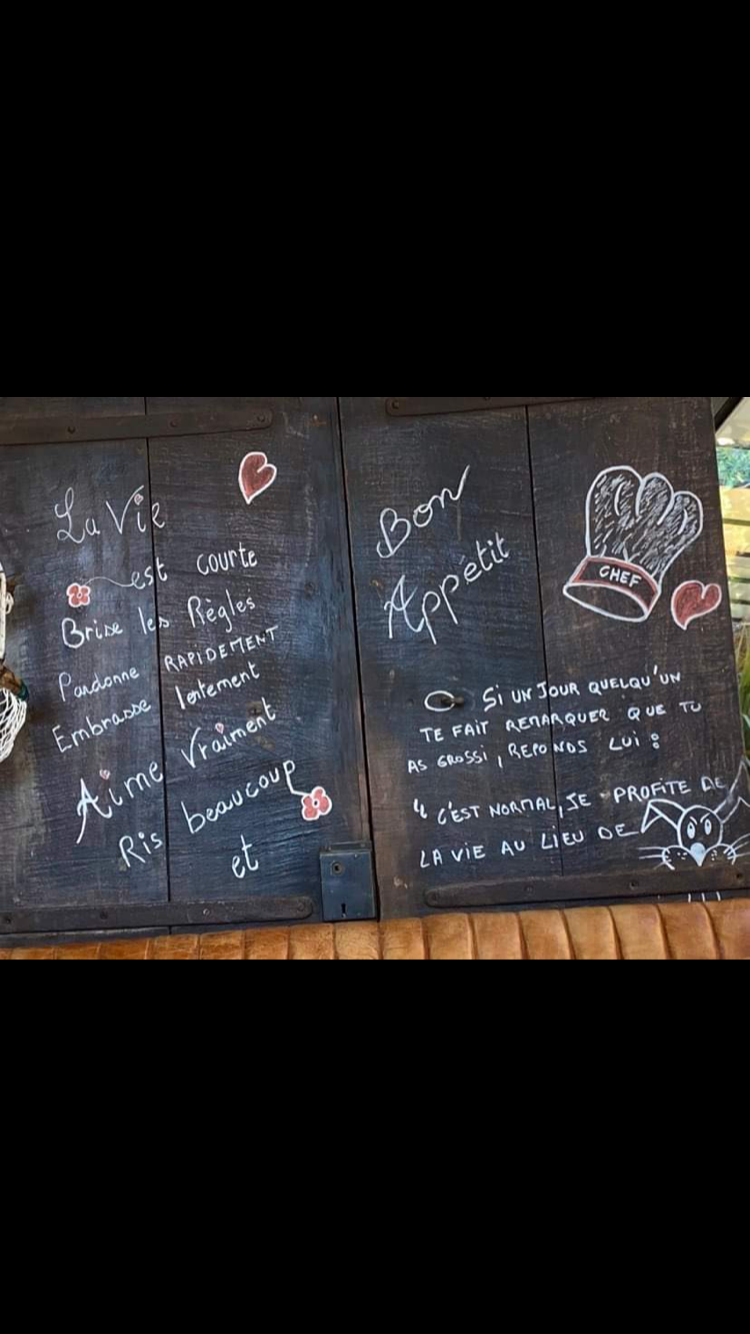 La Vie
est courte
Brise les Règles
Pardonne RAPIDEMENT
Embrasse lentement
Aime Vraiment
Ris beaucoup
et
Bon
Appétit
CHEF
SI UN JOUR QUELQU'UN
TE FAIT REMARQUER QUE TU
AS GROSSI, REPONDS LUI :
" C'EST NORMAL, JE PROFITE DE
LA VIE AU LIEU DE